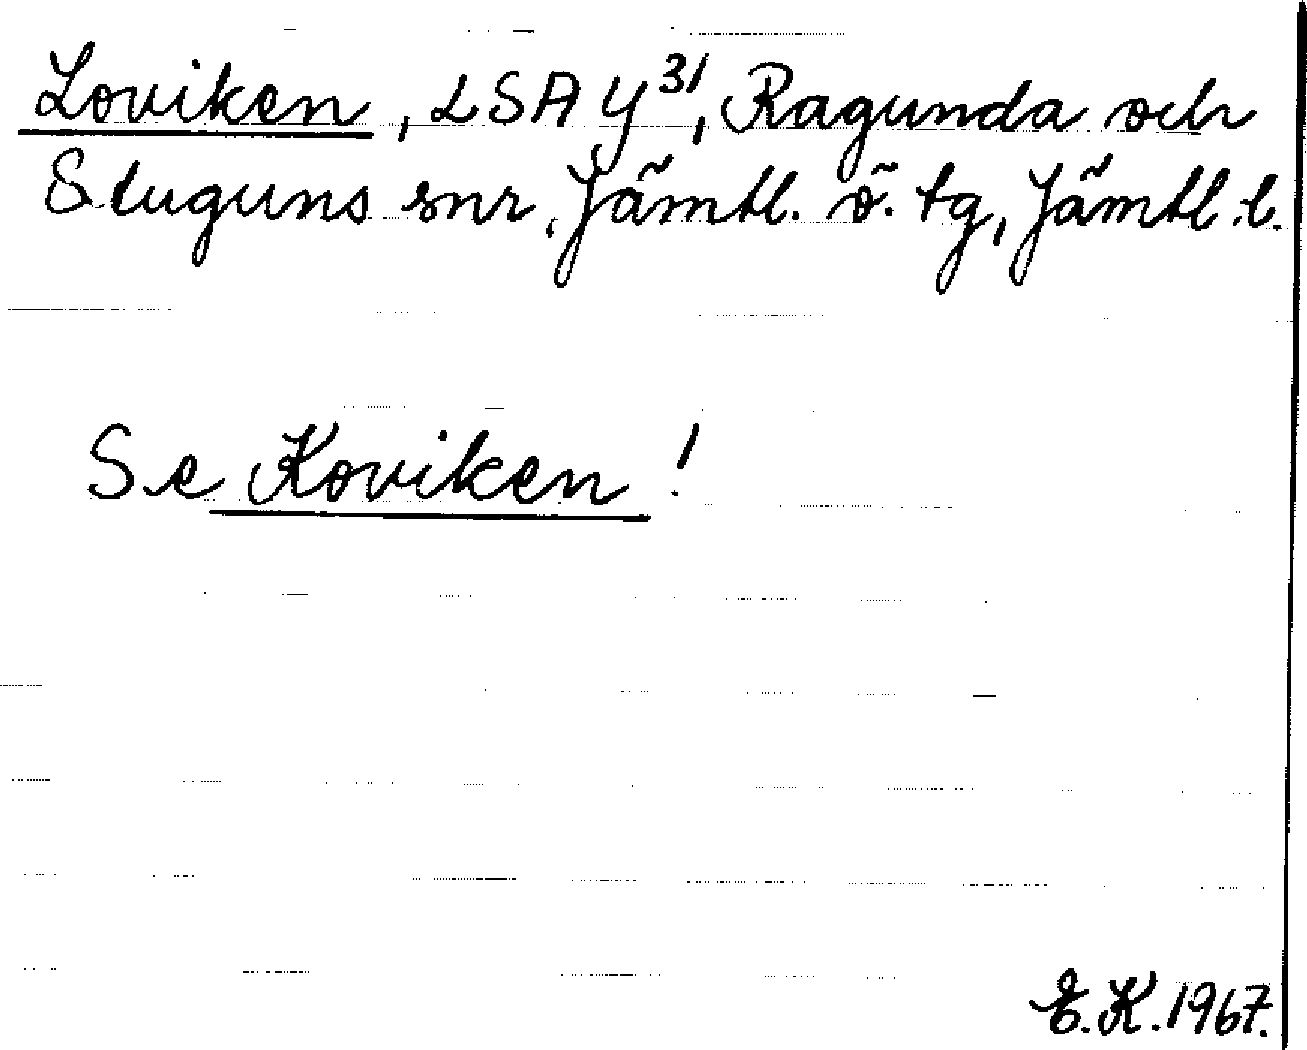 Loviken, LSA Y³¹, Ragunda och
Stuguns snr, Jämtl. ö. tg, Jämtl. l.
Se Koviken!
E.K. 1967.